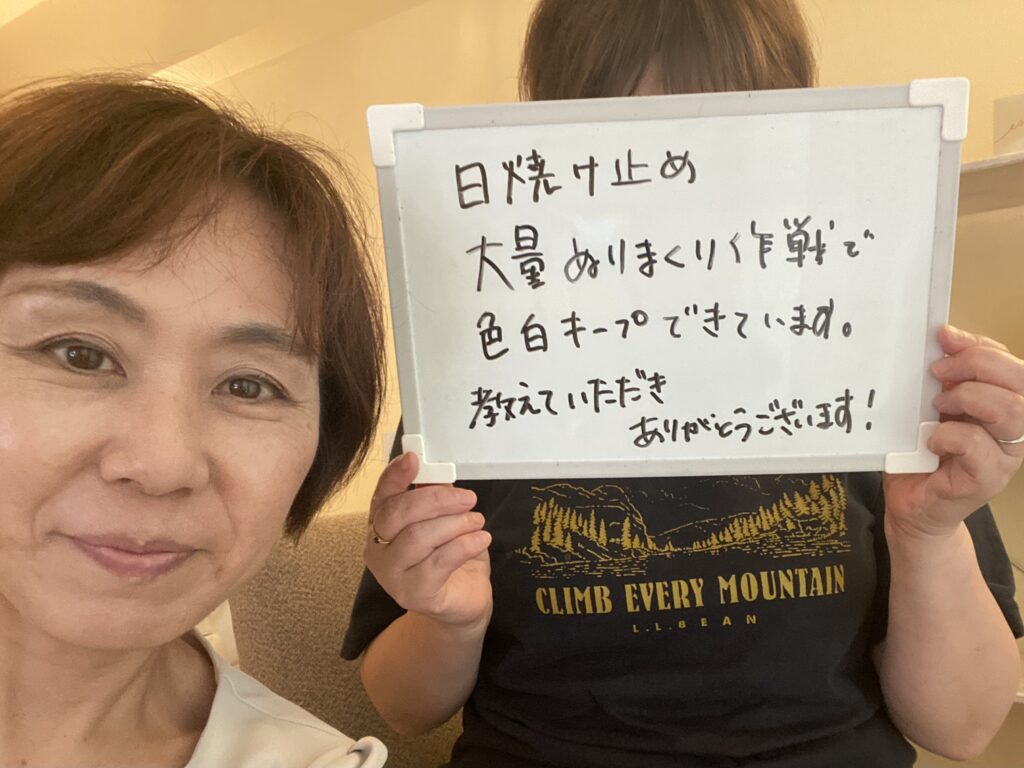 日焼け止め
大量ぬりまくり作戦で
色白キープできています。
教えていただき
ありがとうございます!
CLIMB EVERY MOUNTAIN
L.L.BEAN